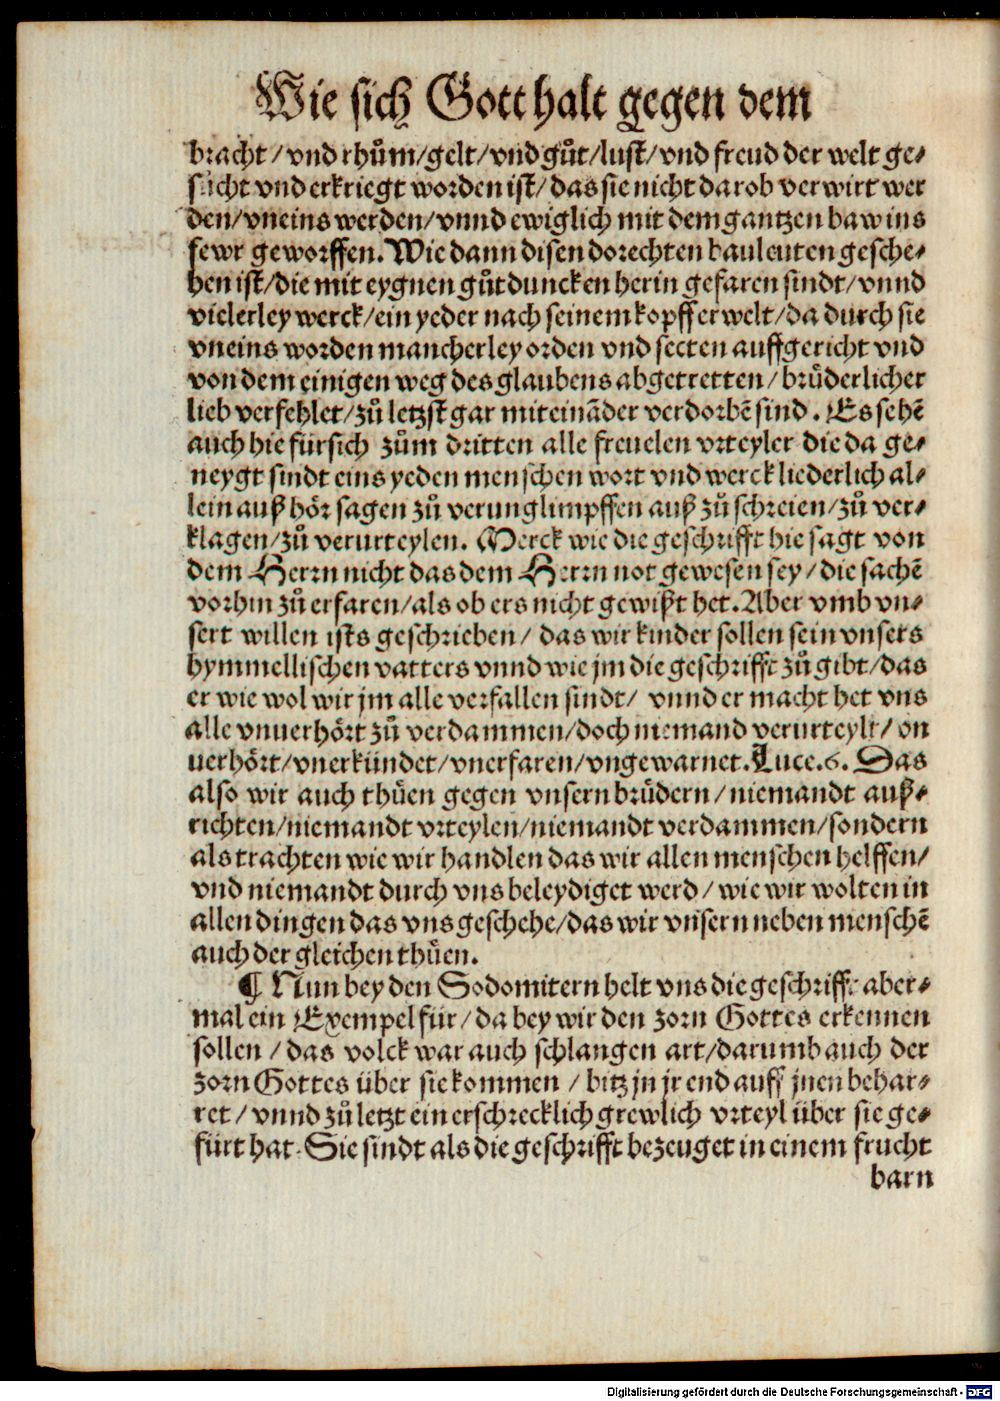 Wie sich Gott halt gegen dem
bracht/vnd rhům/gelt/vnd gůt/lust/vnd freud der welt ge⸗
sůcht vnd erkriegt worden ist/das sie nicht darob verwirt wer
den/vneins werden/vnnd ewiglich mit dem gantzen baw ins
fewr geworffen. Wie dann disen dorechten bauleuten gesche⸗
hen ist/die mit eygnen gůtduncken herin gefaren sindt/vnnd
vielerley werck/ein yeder nach seinem kopff erwelt/da durch sie
vneins worden mancherley orden vnd secten auffgericht vnd
von dem einigen weg des glaubens abgetretten/brůderlicher
lieb verfehlet/zů letzst gar miteinãder verdorbẽ sind. Es sehẽ
auch hie fürsich zům dritten alle freuelen vrteyler die da ge⸗
neygt sindt eins yeden menschen wort vnd werck liederlich al⸗
lein auß hör sagen zů verunglimpffen auß zů schreien/zů ver⸗
klagen/zů verurteylen. Merck wie die geschrifft hie sagt von
dem Herrn nicht das dem Herrn not gewesen sey/die sachẽ
vorhin zů erfaren/als ob ers nicht gewißt het. Aber vmb vn⸗
sert willen ists geschrieben/ das wir kinder sollen sein vnsers
hymmellischen vatters vnnd wie jm die geschrifft zů gibt/das
er wie wol wir jm alle verfallen sindt/ vnnd er macht het vns
alle vnuerhört zů verdammen/doch niemand verurteylt/on
uerhört/vnerkündet/vnerfaren/vngewarnet. Luce.6. Das
also wir auch thůen gegen vnsern brůdern/niemandt auß⸗
richten/niemandt vrteylen/niemandt verdammen/sondern
als trachten wie wir handlen das wir allen menschen helffen/
vnd niemandt durch vns beleydiget werd/wie wir wolten in
allen dingen das vns geschehe/das wir vnsern neben menschẽ
auch der gleichen thůen.
¶ Nun bey den Sodomitern helt vns die geschrifft aber⸗
mal ein Exempel für/da bey wir den zorn Gottes erkennen
sollen/das volck war auch schlangen art/darumb auch der
zorn Gottes über sie kommen/bitz jn jr end auff jnen behar⸗
ret/vnnd zů letzt ein erschrecklich grewlich vrteyl über sie ge⸗
fürt hat. Sie sindt als die geschrifft bezeuget in einem frucht
barn
Digitalisierung gefördert durch die Deutsche Forschungsgemeinschaft - DFG